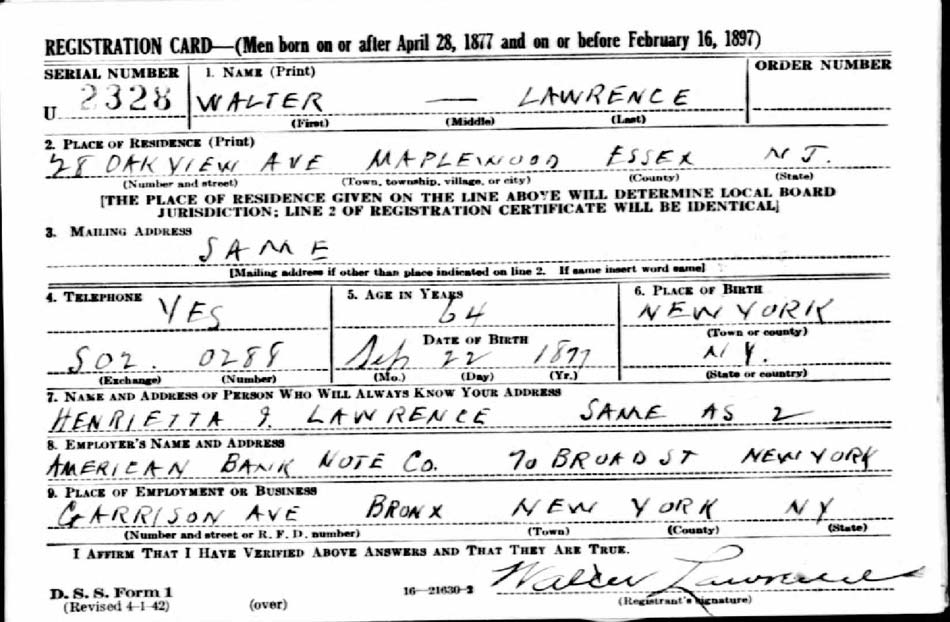 REGISTRATION CARD—(Men born on or after April 28, 1877 and on or before February 16, 1897)
SERIAL NUMBER 1. NAME (Print) ORDER NUMBER
U 2328 WALTER — LAWRENCE
(First) (Middle) (Last)
2. PLACE OF RESIDENCE (Print)
28 OAKVIEW AVE MAPLEWOOD ESSEX N J.
(Number and street) (Town, township, village, or city) (County) (State)
[THE PLACE OF RESIDENCE GIVEN ON THE LINE ABOVE WILL DETERMINE LOCAL BOARD
JURISDICTION; LINE 2 OF REGISTRATION CERTIFICATE WILL BE IDENTICAL]
3. MAILING ADDRESS
SAME
[Mailing address if other than place indicated on line 2. If same insert word same]
4. TELEPHONE 5. AGE IN YEARS 6. PLACE OF BIRTH
YES 64 NEW YORK
DATE OF BIRTH (Town or county)
SO2. 0288 Sep 22 1877 N.Y.
(Exchange) (Number) (Mo.) (Day) (Yr.) (State or country)
7. NAME AND ADDRESS OF PERSON WHO WILL ALWAYS KNOW YOUR ADDRESS
HENRIETTA J. LAWRENCE SAME AS 2
8. EMPLOYER'S NAME AND ADDRESS
AMERICAN BANK NOTE CO. 70 BROAD ST NEW YORK
9. PLACE OF EMPLOYMENT OR BUSINESS
GARRISON AVE BRONX NEW YORK NY
(Number and street or R. F. D. number) (Town) (County) (State)
I AFFIRM THAT I HAVE VERIFIED ABOVE ANSWERS AND THAT THEY ARE TRUE.
Walter Lawrence
D. S. S. Form 1 16—21630-2 (Registrant's signature)
(Revised 4-1-42) (over)